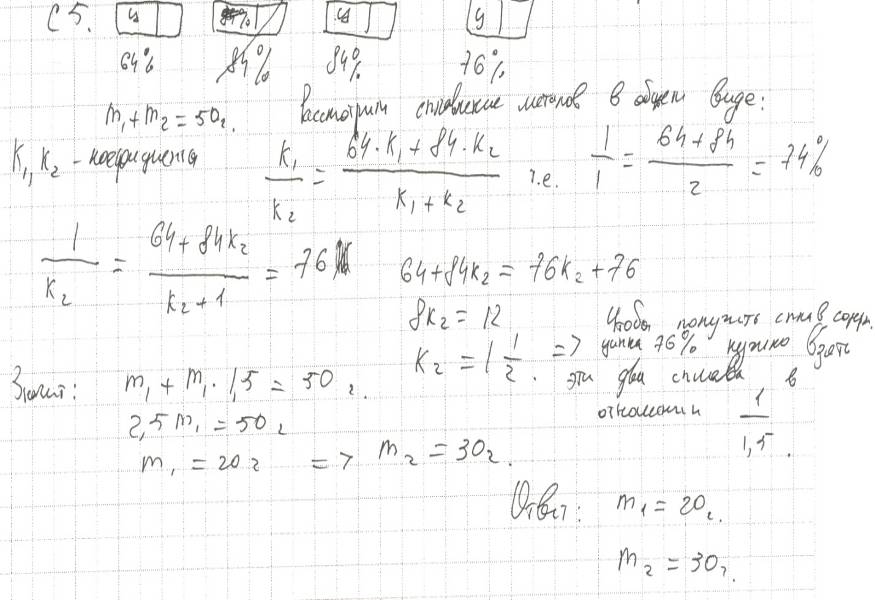 С 5. ц ц ц
64% 84% 84% 76%
m₁ + m₂ = 50г. Рассмотрим сплавление металов в общем виде:
K₁, K₂ – коефициента K₁/K₂ = (64·K₁ + 84·K₂)/(K₁ + K₂) т.е. 1/1 = (64 + 84)/2 = 74%
1/K₂ = (64 + 84K₂)/(K₂ + 1) = 76 64 + 84K₂ = 76K₂ + 76
8K₂ = 12
K₂ = 1 1/2. => Чтобы получить сплав содерж.
цинка 76% нужно взять
эти два сплава в
отношении 1/1,5.
Значит: m₁ + m₁ · 1,5 = 50 г.
2,5 m₁ = 50 г
m₁ = 20 г => m₂ = 30г.
Ответ: m₁ = 20г.
m₂ = 30г.